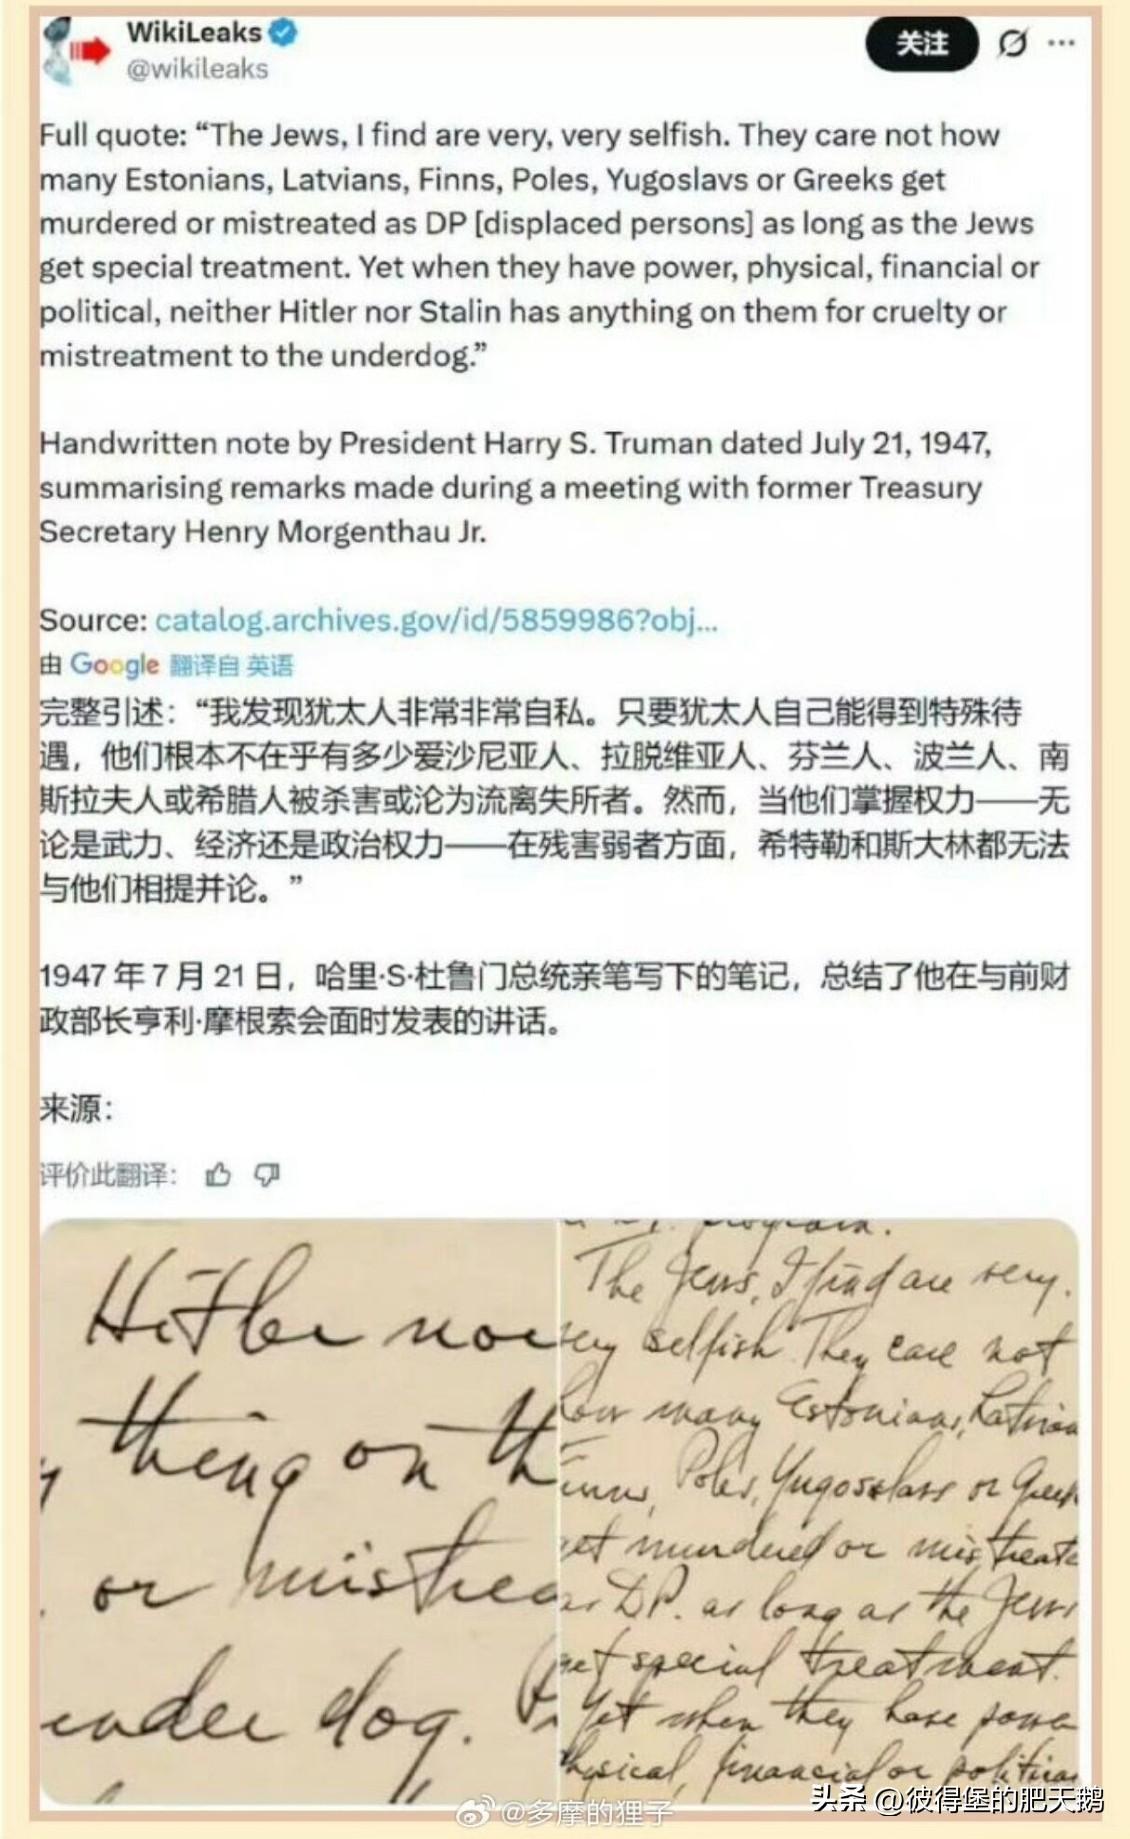 WikiLeaks
@wikileaks
关注
Full quote: “The Jews, I find are very, very selfish. They care not how
many Estonians, Latvians, Finns, Poles, Yugoslavs or Greeks get
murdered or mistreated as DP [displaced persons] as long as the Jews
get special treatment. Yet when they have power, physical, financial or
political, neither Hitler nor Stalin has anything on them for cruelty or
mistreatment to the underdog.”
Handwritten note by President Harry S. Truman dated July 21, 1947,
summarising remarks made during a meeting with former Treasury
Secretary Henry Morgenthau Jr.
Source: catalog.archives.gov/id/5859986?obj...
由 Google 翻译自 英语
完整引述：“我发现犹太人非常非常自私。只要犹太人自己能得到特殊待
遇，他们根本不在乎有多少爱沙尼亚人、拉脱维亚人、芬兰人、波兰人、南
斯拉夫人或希腊人被杀害或沦为流离失所者。然而，当他们掌握权力——无
论是武力、经济还是政治权力——在残害弱者方面，希特勒和斯大林都无法
与他们相提并论。”
1947 年 7 月 21 日，哈里·S·杜鲁门总统亲笔写下的笔记，总结了他在与前财
政部长亨利·摩根索会面时发表的讲话。
来源：
评价此翻译：
Hitler nor
thing on th
or mistrea
under dog.
program.
The Jews, I find are very,
very selfish. They care not
how many Estonians, Latvian
Finns, Poles, Yugosslavs or Greek
get murdered or mistreate
as D.P. as long as the Jews
get special treatment.
Yet when they have power
physical, financial or political
@多摩的狸子
头条 @彼得堡的肥天鹅